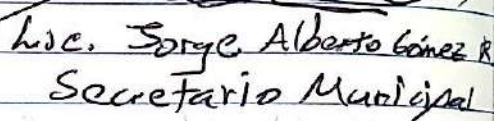 Lic. Jorge Alberto Gómez R
Secretario Municipal